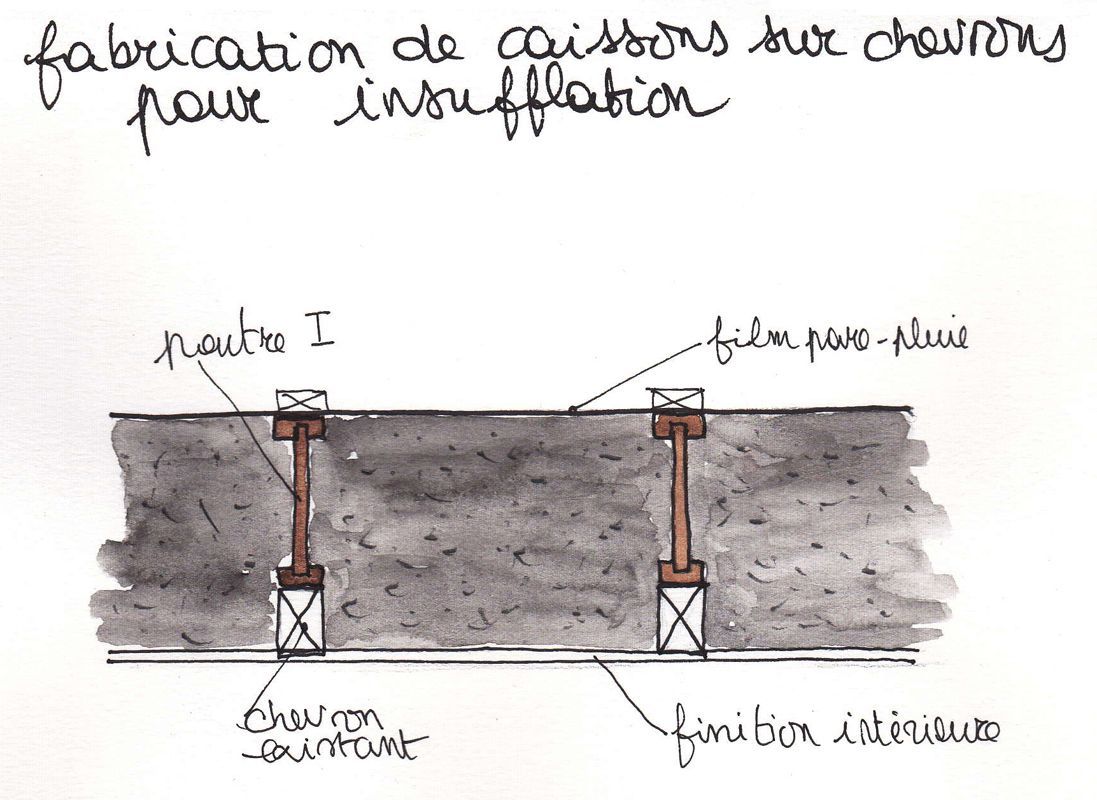 fabrication de caissons sur chevrons
pour insufflation
poutre I
film pare-pluie
chevron
existant
finition intérieure